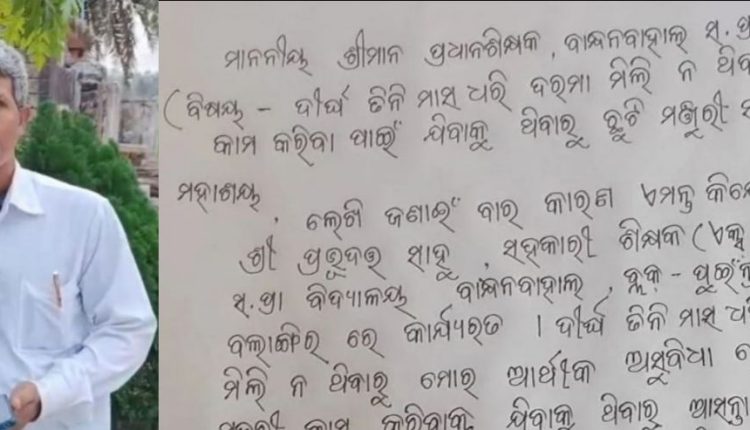 ମାନନୀୟ ଶ୍ରୀମାନ ପ୍ରଧାନଶିକ୍ଷକ, ବାନ୍ଧନବାହାଲ ସ.ପ୍ର
(ବିଷୟ - ଦୀର୍ଘ ତିନି ମାସ ଧରି ଦରମା ମିଲି ନ ଥିବ
କାମ କରିବା ପାଇଁ ଯିବାକୁ ଥିବାରୁ ଛୁଟି ମଞ୍ଜୁରୀ
ମହାଶୟ,
ଲେଖି ଜଣାଇଁ ବାର କାରଣ ଏମନ୍ତ କି
ଶ୍ରୀ ସାହୁ, ସହକାରୀ ଶିକ୍ଷକ (ଏକ୍ସ
ସ.ପ୍ରା ବିଦ୍ୟାଳୟ ବାନ୍ଧନବାହାଲ, ବ୍ଲକ - ପୁଇଁ
ବଲାଙ୍ଗିର ରେ କାର୍ଯ୍ୟରତ । ଦୀର୍ଘ ତିନି ମାସ ଧ
ମିଲି ନ ଥିବାରୁ ମୋର ଆର୍ଥୀକ ଅସୁବିଧା
କାମ କରିବାକୁ ଯିବାକୁ ଥିବାରୁ ଆସନ୍ତା